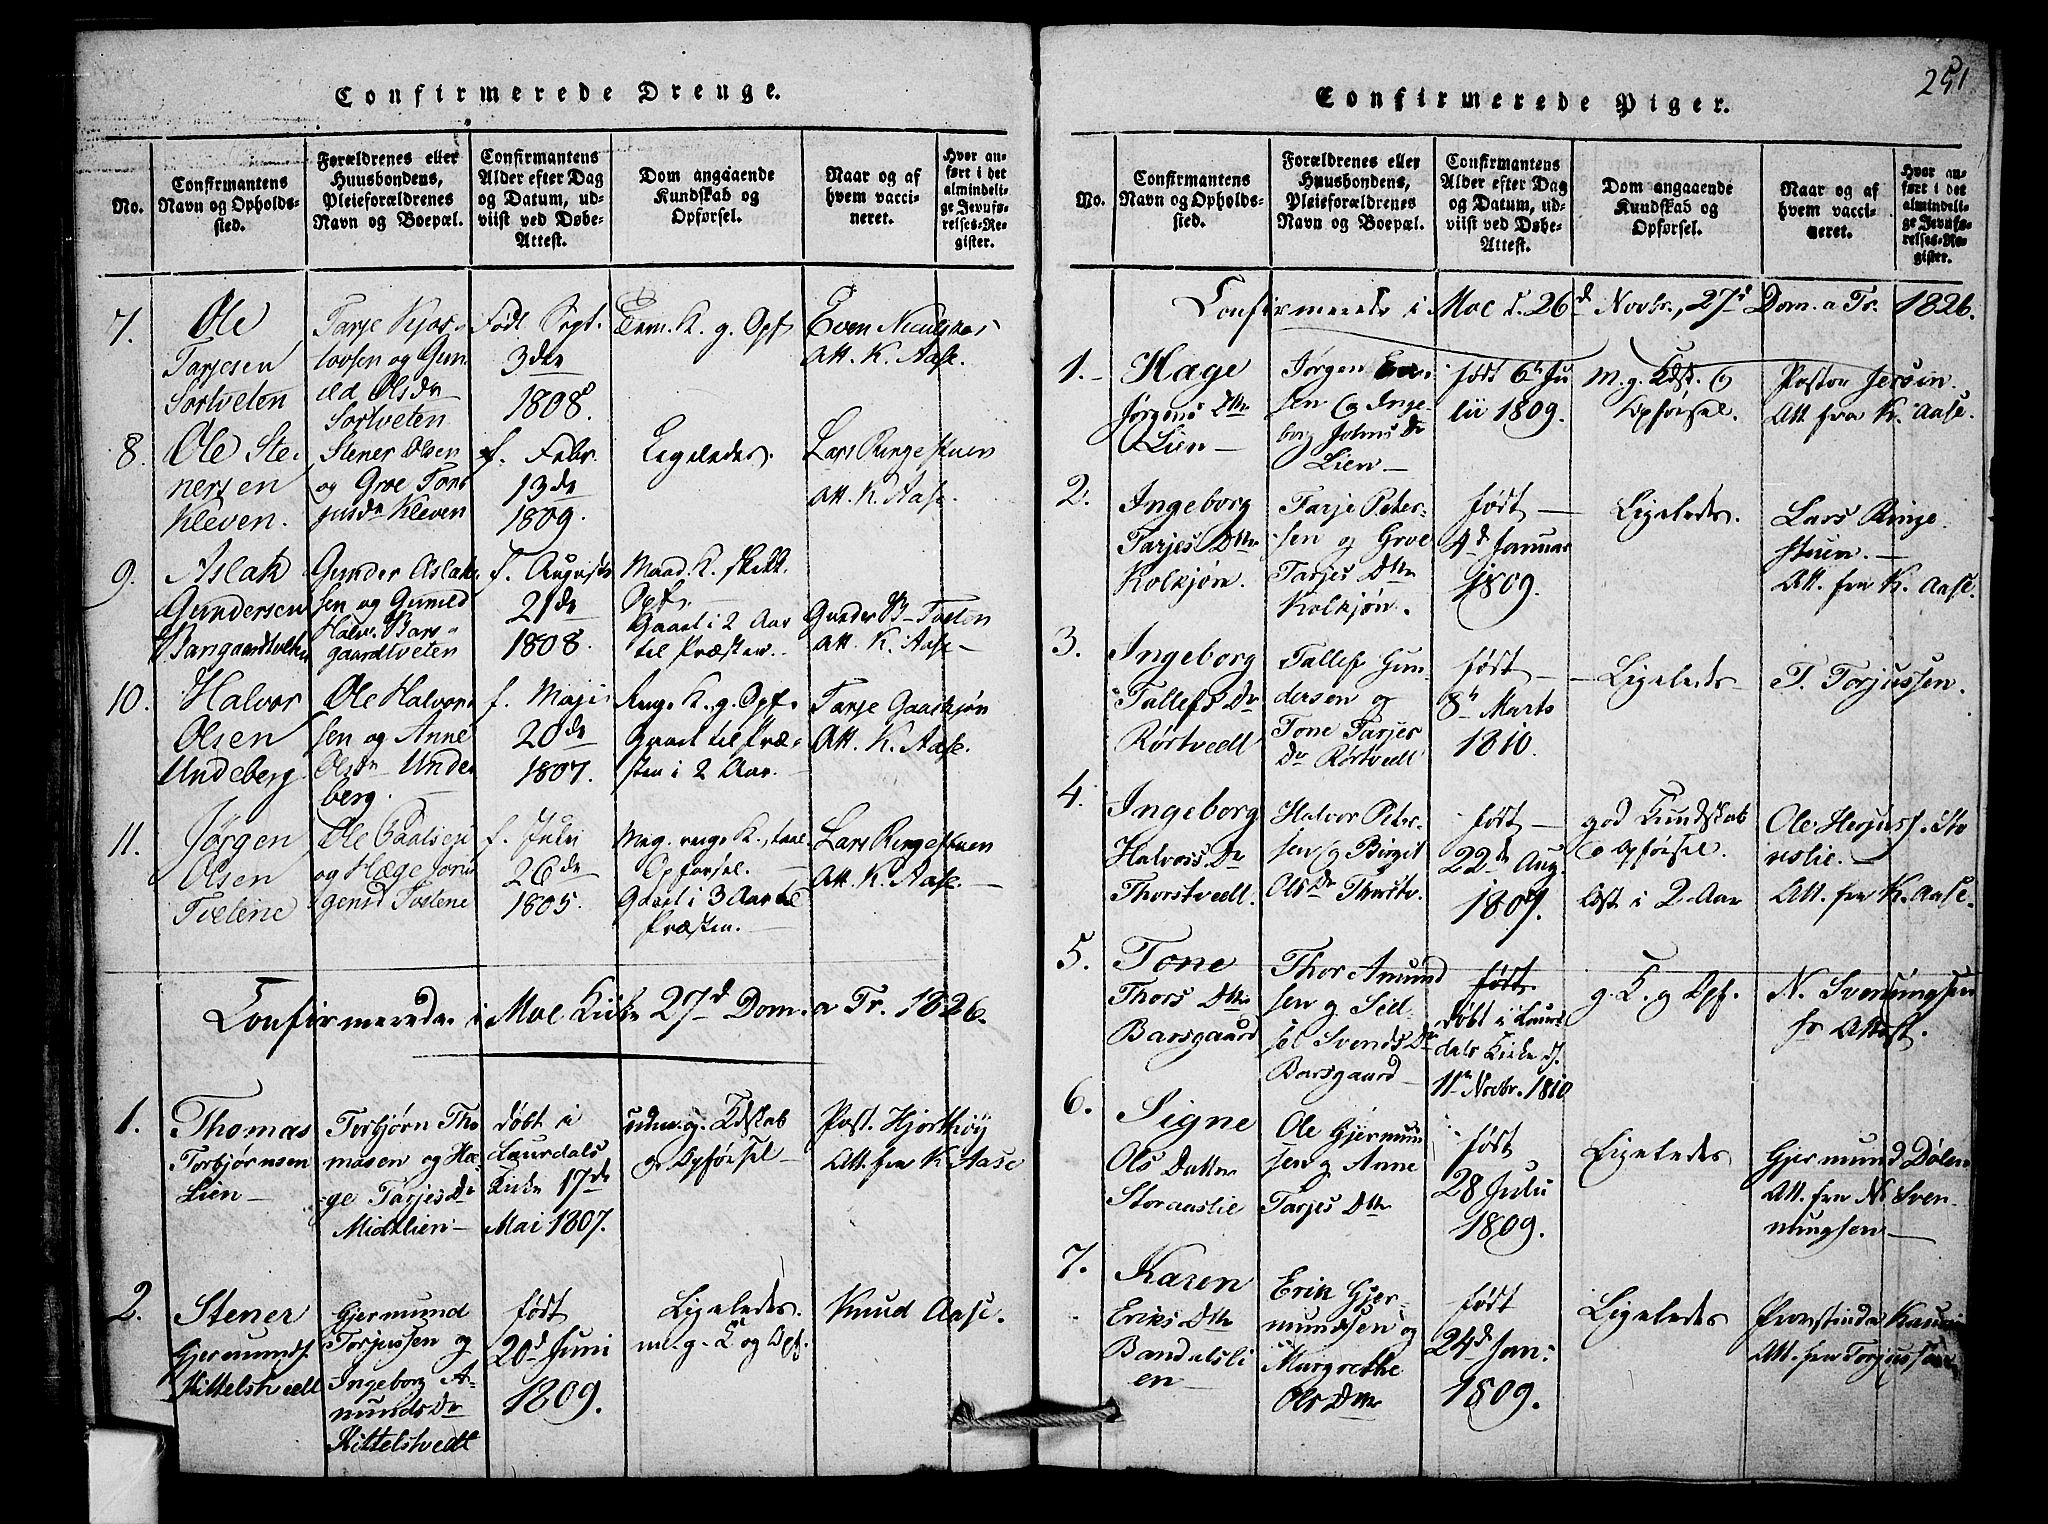 Confirmerede Drenge.
No.
Confirmantens
Navn og Opholds-
sted.
Forældrenes eller
Huusbondens,
Pleieforældrenes
Navn og Boepæl.
Confirmantens
Alder efter Dag
og Datum, ud-
viist ved Døbe-
Attest.
Dom angaaende
Kundskab og
Opførsel.
Naar og af
hvem vacci-
neret.
Hvor an-
ført i det
almindeli-
ge Jevnfø-
relses-Re-
gister.
7.
Ole
Tarjesen
Sortveten
Tarje
lovsen og Gun
ild Olsdr
Sortveten
Født Sept.
3die
1808.
K. g. Opf.
Even
Att. K. Aase.
8.
Ole Ste-
nersen
Kleven.
Stener Olsen
og Groe Tor
jusdr Kleven
f. Febr.
13de
1809.
Ligeledes.
Lars Ringestuen
Att. K. Aase.
9.
Aslak
Gundersen
Gunder Aslak
sen og Gunild
Halv. Bars-
gaardtveten
f. August
21de
1808.
Maad. K. skikk.
Opf.
Gaaet i 2 Aar
til Præsten.
Gunder B-Tveten
Att. K. Aase-
10.
Halvor
Olsen
Undeberg.
Ole Halvor
sen og Anne
Olsdr Unde
berg.
f. Maji
20de
1807.
K. g. Opf.
Gaaet til Præ-
sten i 2 Aar.
Tarje Gaaskjøn
Att. K. Aase.
11.
Jørgen
Olsen
Tvetene
Ole Paalsen
og Hæge Jør
gensd Tvetene
f. Julii
26de
1805.
Meg. ringe K.,
Opførsel.
Gaaet i 3 Aar til
Præsten.
Lars Ringestuen
Att. K. Aase.
Confirmerede i Moe Kirke 27d Dom. a Tr. 1826.
1.
Thomas
Torbjørnsen
Lien-
Torbjørn Tho
masen og Hæ
ge Tarjes Dr
Midtlien-
døbt i
Laurdals
Kirke 17de
Mai 1807.
g. Kdskab
og Opførsel-
Past. Hjorthøy
Att. fra K Aase
2.
Stener
Gjermunds.
Kittelstvedt
Gjermund
Torjussen og
Ingeborg A-
munds Dr
Kittelstvedt
født
20d Juni
1809.
Ligeledes.
m. g. K og Opf.
Knud Aase.
251
Confirmerede Piger.
No.
Confirmantens
Navn og Opholds-
sted.
Forældrenes eller
Huusbondens,
Pleieforældrenes
Navn og Boepæl.
Confirmantens
Alder efter Dag
og Datum, ud-
viist ved Døbe-
Attest.
Dom angaaende
Kundskab og
Opførsel.
Naar og af
hvem vacci-
neret.
Hvor an-
ført i det
almindeli-
ge Jevnfø-
relses-Re-
gister.
Confirmerede i Moe d. 26d Novbr, 27d Dom. a Tr. 1826.
1.-
Hæge
Jørgens Dttr
Lien-
Jørgen
sen og Inge-
borg Johns Dr
Lien-
født 6te Ju
lii 1809.
M. g. Kdsk. og
Opførsel.
Pastor Jersin.
Att. fra K. Aase.
2.
Ingeborg
Tarjes Dttr
Kolkjøn.
Tarje Peter-
sen og Groe
Tarjes Dttr
Kolkjøn.
født-
4d Januar
1809.
Ligeledes.
Lars Ringe-
stuen.-
Att. fra K. Aase.
3.
Ingeborg
Tallefs Dr
Rørtvedt
Tallef Gun
dersen og
Tone Tarjes
Dr Rørtvedt
født-
8de Marts
1810.
Ligeledes-
T. Torjussen.
4.
Ingeborg
Halvors Dr
Thorstvedt.
Halvor Peter-
sen og Birgit
Ols Dr Thorstv.
født-
22de Aug.
1807.
god Kundskab
og Opførsel.
Læst i 2 Aar
Ole Herjuss. Sto
reslie.
Att. fra K. Aase.
5.
Tone
Thors Dttr
Barsgaard
Thor Amund
sen og Sid-
sel Svends Dr
Barsgaard-
født.
døbt i Laur-
dals Kirke d.
11te Novbr. 1810
g. K. g Opf.
N. Svenungsen
s. Attest.
6.
Signe
Ols Datter
Storaaslie
Ole Gjermun
sen og Anne
Tarjes Dttr
født
28 Julii
1809.
Ligeledes
Gjermund Dølen
Att. fra N. Sven-
nungsen-
7.
Karen
Eriks Dttr
Bandaksli
en-
Erik Gjer-
mundsen og
Margrethe
Ols Dttr
født
24d Jan:
1809.
Ligeledes
Provstinde
Att. fra Torjussen